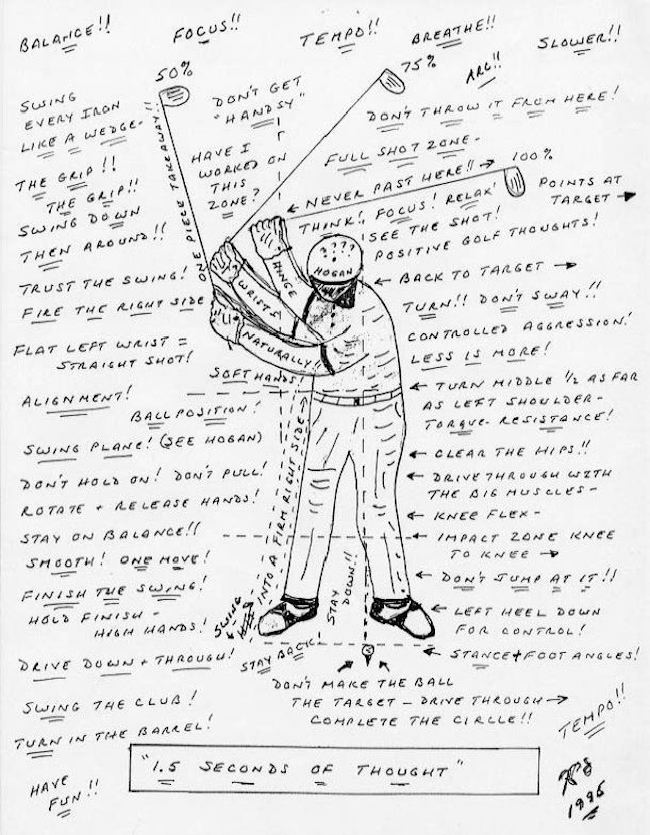 BALANCE!!
FOCUS!!
TEMPO!!
BREATHE!!
SLOWER!!
50%
75%
ARC!!
SWING
EVERY IRON
LIKE A WEDGE-
DON'T GET
"HANDSY"
DON'T THROW IT FROM HERE!
HAVE I
WORKED ON
THIS
ZONE?
FULL SHOT ZONE-
100%
ONE PIECE TAKEAWAY!!
THE GRIP!!
THE GRIP!!
← NEVER PAST HERE!! →
POINTS AT
TARGET →
SWING DOWN
THEN AROUND!!
THINK! FOCUS! RELAX!
SEE THE SHOT!
POSITIVE GOLF THOUGHTS!
????
HOGAN
TRUST THE SWING!
FIRE THE RIGHT SIDE
HINGE
WRISTS
NATURALLY!!
← BACK TO TARGET →
TURN!! DON'T SWAY!!
FLAT LEFT WRIST =
STRAIGHT SHOT!
CONTROLLED AGGRESSION!
LESS IS MORE!
SOFT HANDS!
ALIGNMENT!
BALL POSITION!
← TURN MIDDLE ½ AS FAR
AS LEFT SHOULDER-
TORQUE-RESISTANCE!
SWING PLANE! (SEE HOGAN)
← CLEAR THE HIPS!!
DON'T HOLD ON! DON'T PULL!
ROTATE + RELEASE HANDS!
← DRIVE THROUGH WITH
THE BIG MUSCLES-
← KNEE FLEX-
STAY ON BALANCE!!
← IMPACT ZONE KNEE
TO KNEE →
SMOOTH! ONE MOVE!
← DON'T JUMP AT IT!!
FINISH THE SWING!
HOLD FINISH -
HIGH HANDS!
SWING
INTO A FIRM RIGHT SIDE →
STAY
DOWN!!
← LEFT HEEL DOWN
FOR CONTROL!
DRIVE DOWN + THROUGH!
STAY BACK
← STANCE + FOOT ANGLES!
DON'T MAKE THE BALL
THE TARGET - DRIVE THROUGH →
COMPLETE THE CIRCLE!!
SWING THE CLUB!
TURN IN THE BARREL!
TEMPO!!
"1.5 SECONDS OF THOUGHT"
HAVE
FUN!!